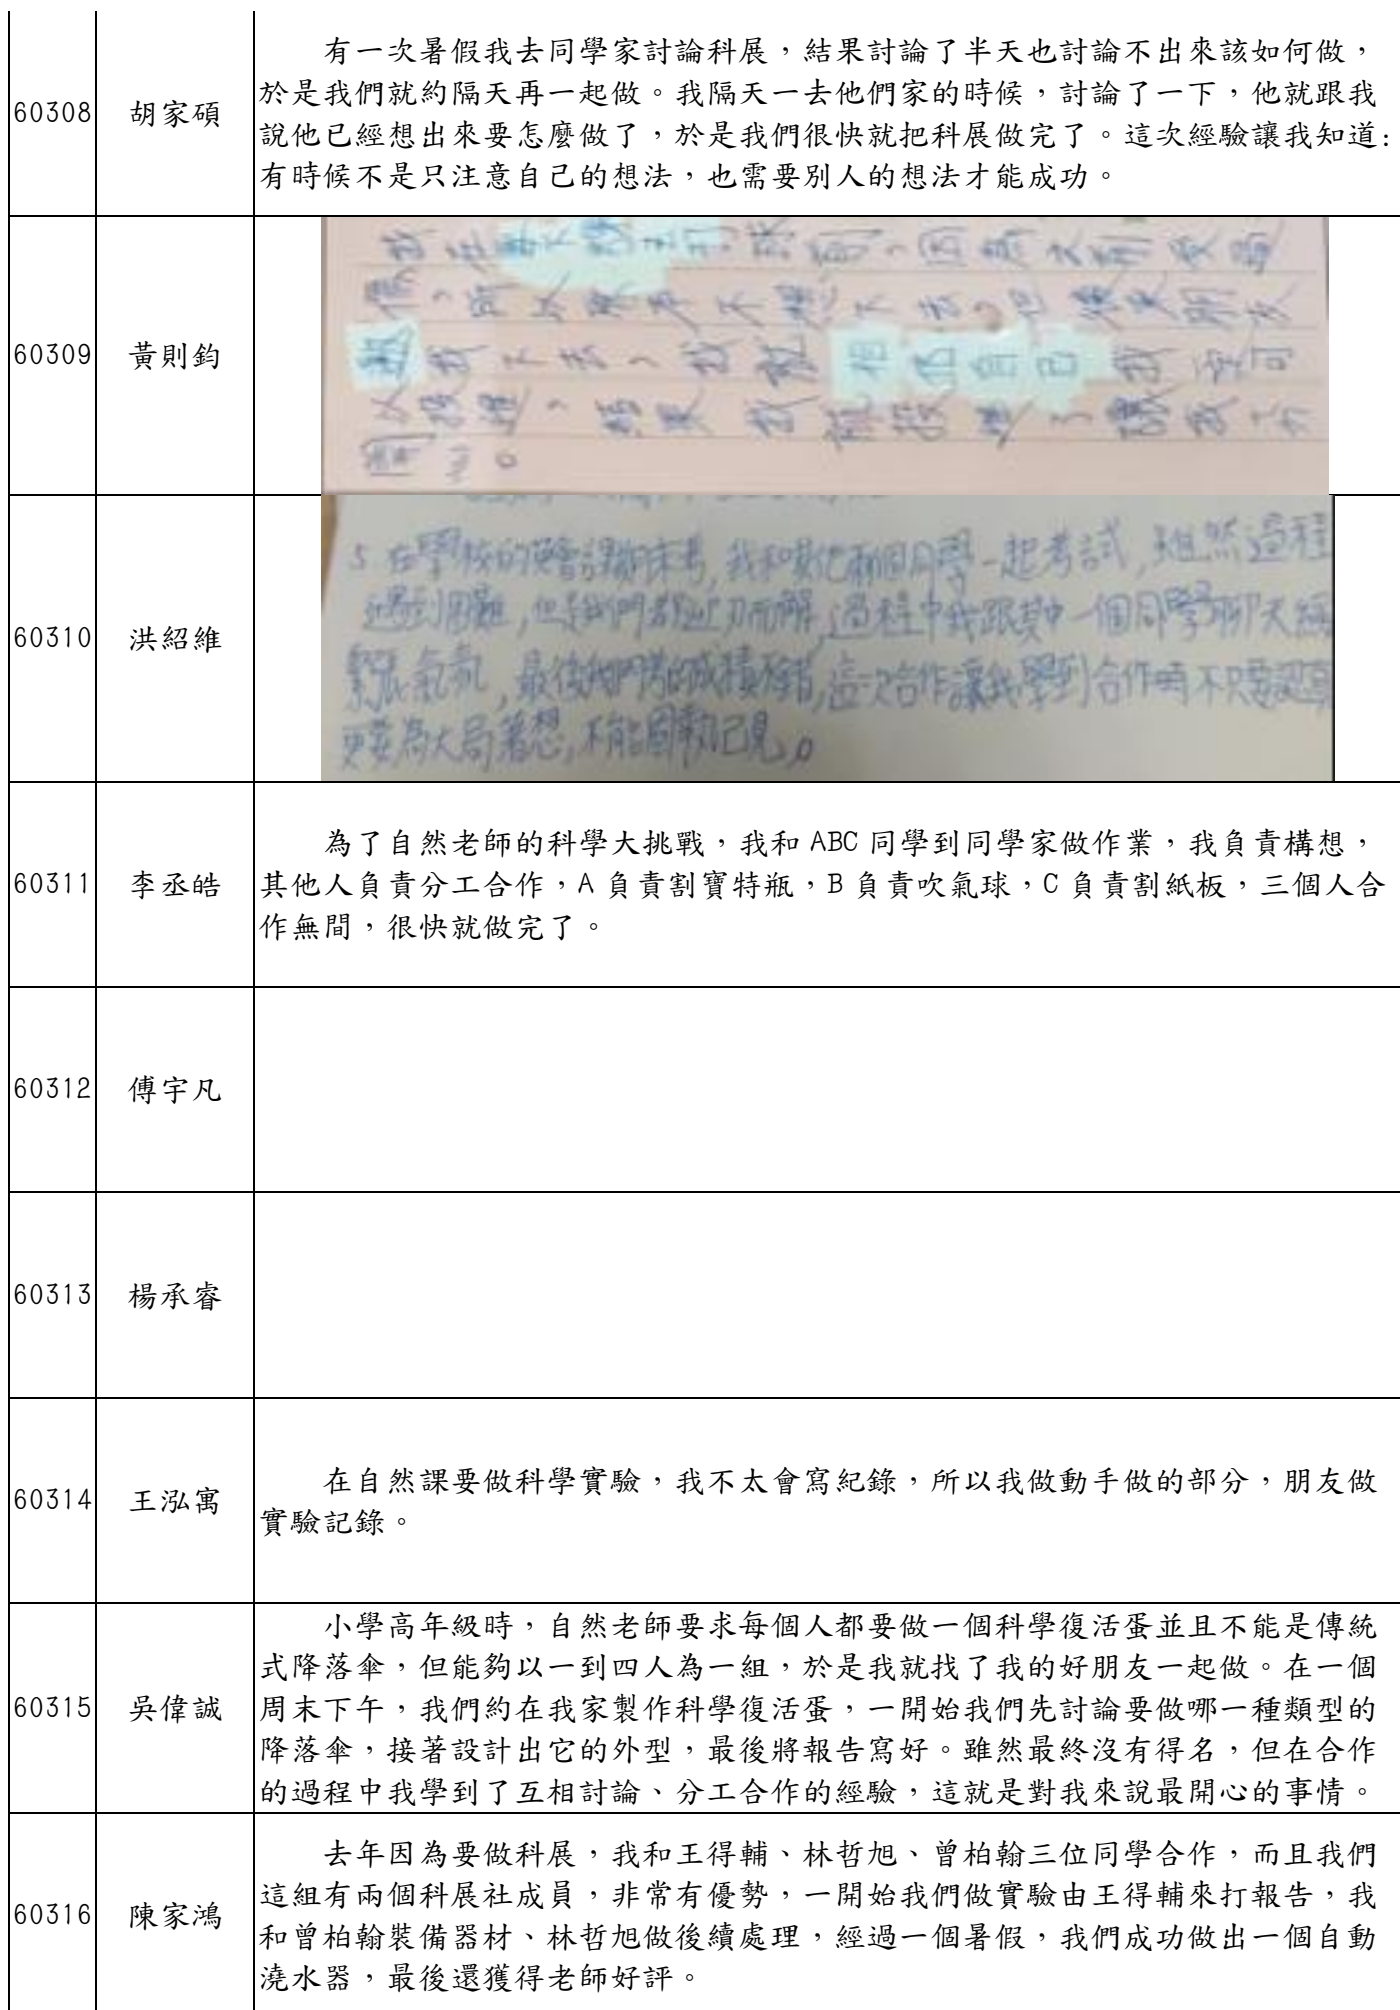 60308
胡家碩
有一次暑假我去同學家討論科展，結果討論了半天也討論不出來該如何做，
於是我們就約隔天再一起做。我隔天一去他們家的時候，討論了一下，他就跟我
說他已經想出來要怎麼做了，於是我們很快就把科展做完了。這次經驗讓我知道:
有時候不是只注意自己的想法，也需要別人的想法才能成功。
60309
黃則鈞
60310
洪紹維
5 在學校的 課期末考,我和其他兩個同學一起考試,雖然過程
遇到困難,但是我們都迎刃而解,過程中我跟其中一個同學聊天緩
氣氛,最後我們 的成績 ,這次合作讓我學到合作時不只要認真
更要為大局著想,不能固執己見。
60311
李丞皓
為了自然老師的科學大挑戰，我和 ABC 同學到同學家做作業，我負責構想，
其他人負責分工合作，A 負責割寶特瓶，B 負責吹氣球，C 負責割紙板，三個人合
作無間，很快就做完了。
60312
傅宇凡
60313
楊承睿
60314
王泓寓
在自然課要做科學實驗，我不太會寫紀錄，所以我做動手做的部分，朋友做
實驗記錄。
60315
吳偉誠
小學高年級時，自然老師要求每個人都要做一個科學復活蛋並且不能是傳統
式降落傘，但能夠以一到四人為一組，於是我就找了我的好朋友一起做。在一個
周末下午，我們約在我家製作科學復活蛋，一開始我們先討論要做哪一種類型的
降落傘，接著設計出它的外型，最後將報告寫好。雖然最終沒有得名，但在合作
的過程中我學到了互相討論、分工合作的經驗，這就是對我來說最開心的事情。
60316
陳家鴻
去年因為要做科展，我和王得輔、林哲旭、曾柏翰三位同學合作，而且我們
這組有兩個科展社成員，非常有優勢，一開始我們做實驗由王得輔來打報告，我
和曾柏翰裝備器材、林哲旭做後續處理，經過一個暑假，我們成功做出一個自動
澆水器，最後還獲得老師好評。